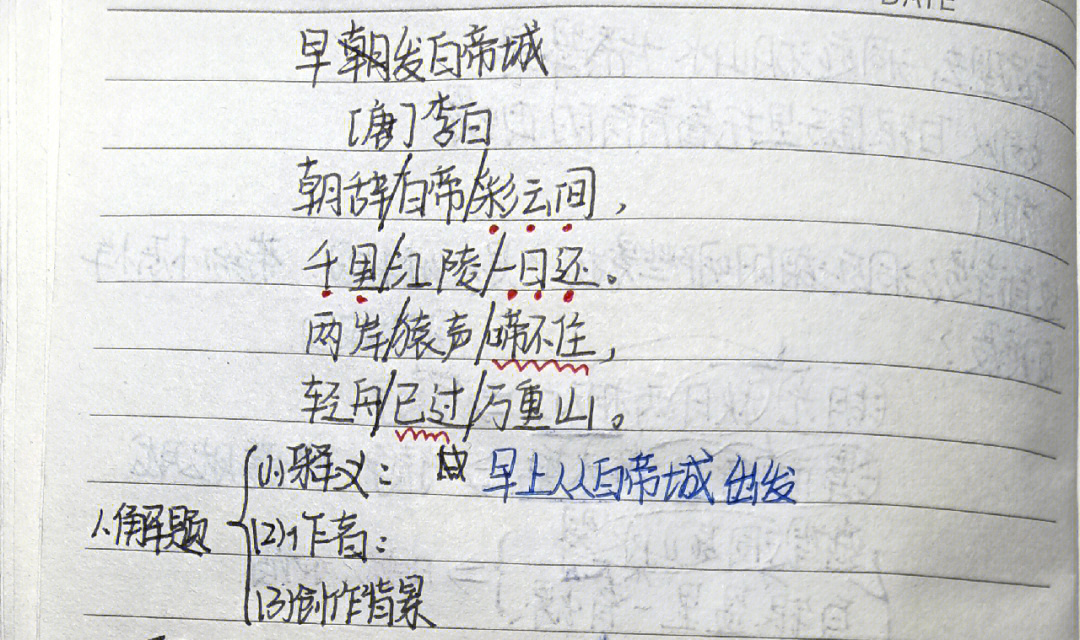 DATE
早朝发白帝城
[唐]李白
朝辞/白帝/彩云间，
千里/江陵/一日还。
两岸/猿声/啼不住，
轻舟/已过/万重山。
1.解题
(1)释义： 早上从白帝城出发
(2)作者：
(3)创作背景